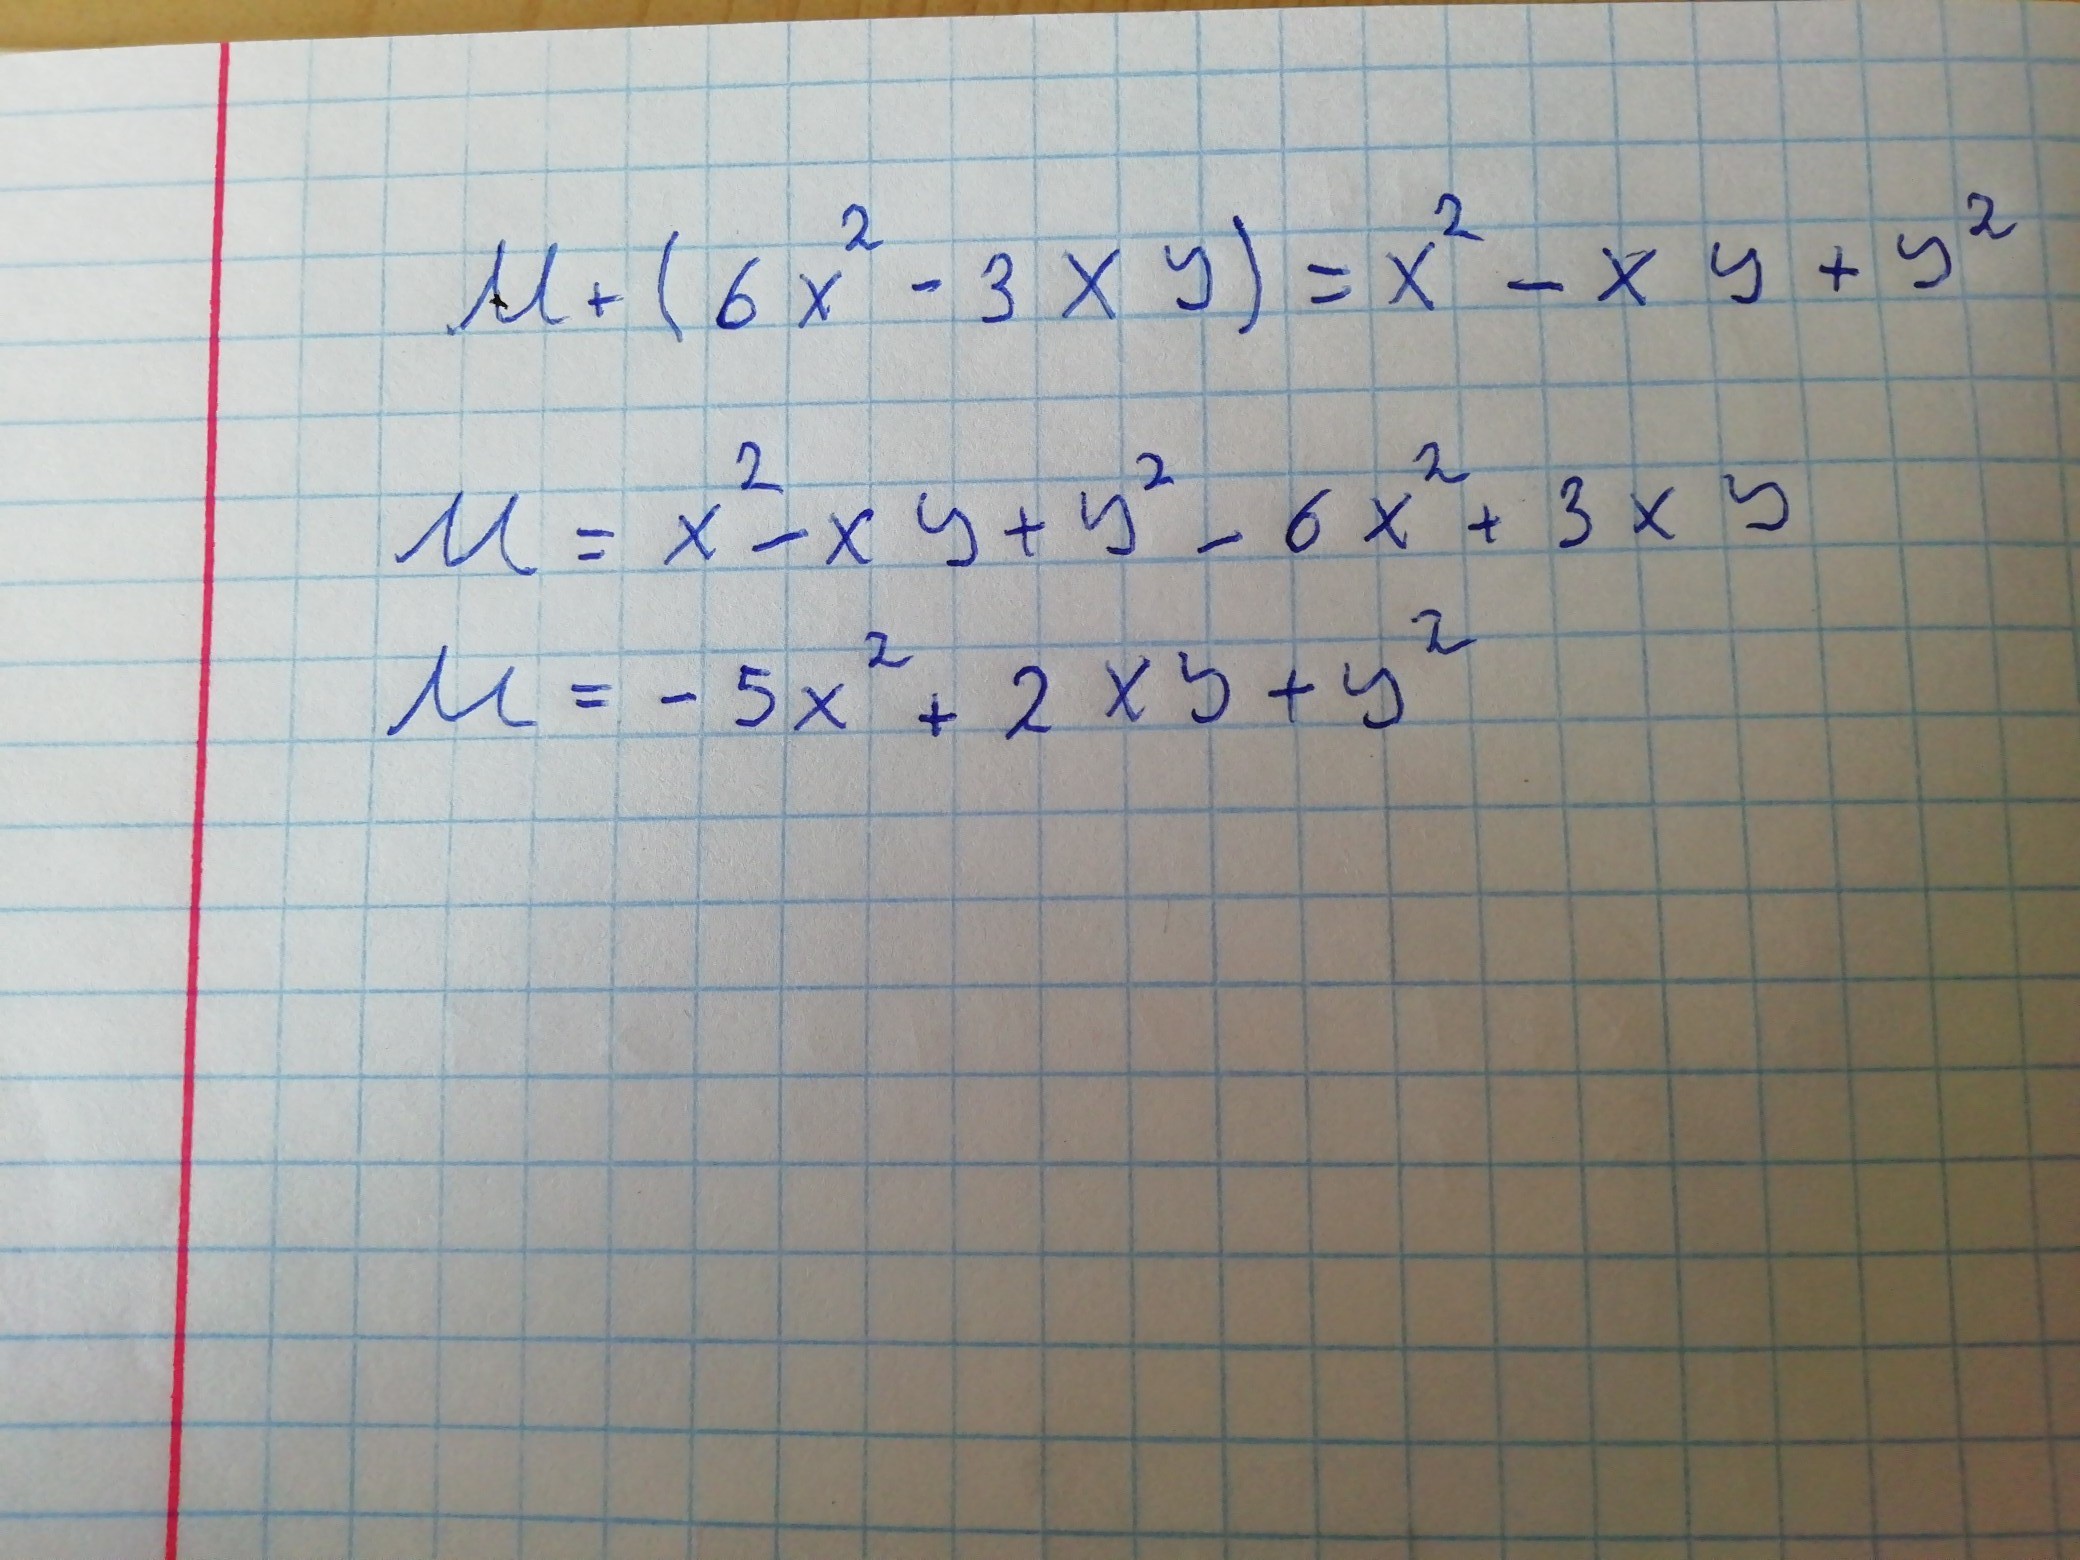 M + (6x² - 3xy) = x² - xy + y²
M = x² - xy + y² - 6x² + 3xy
M = - 5x² + 2xy + y²